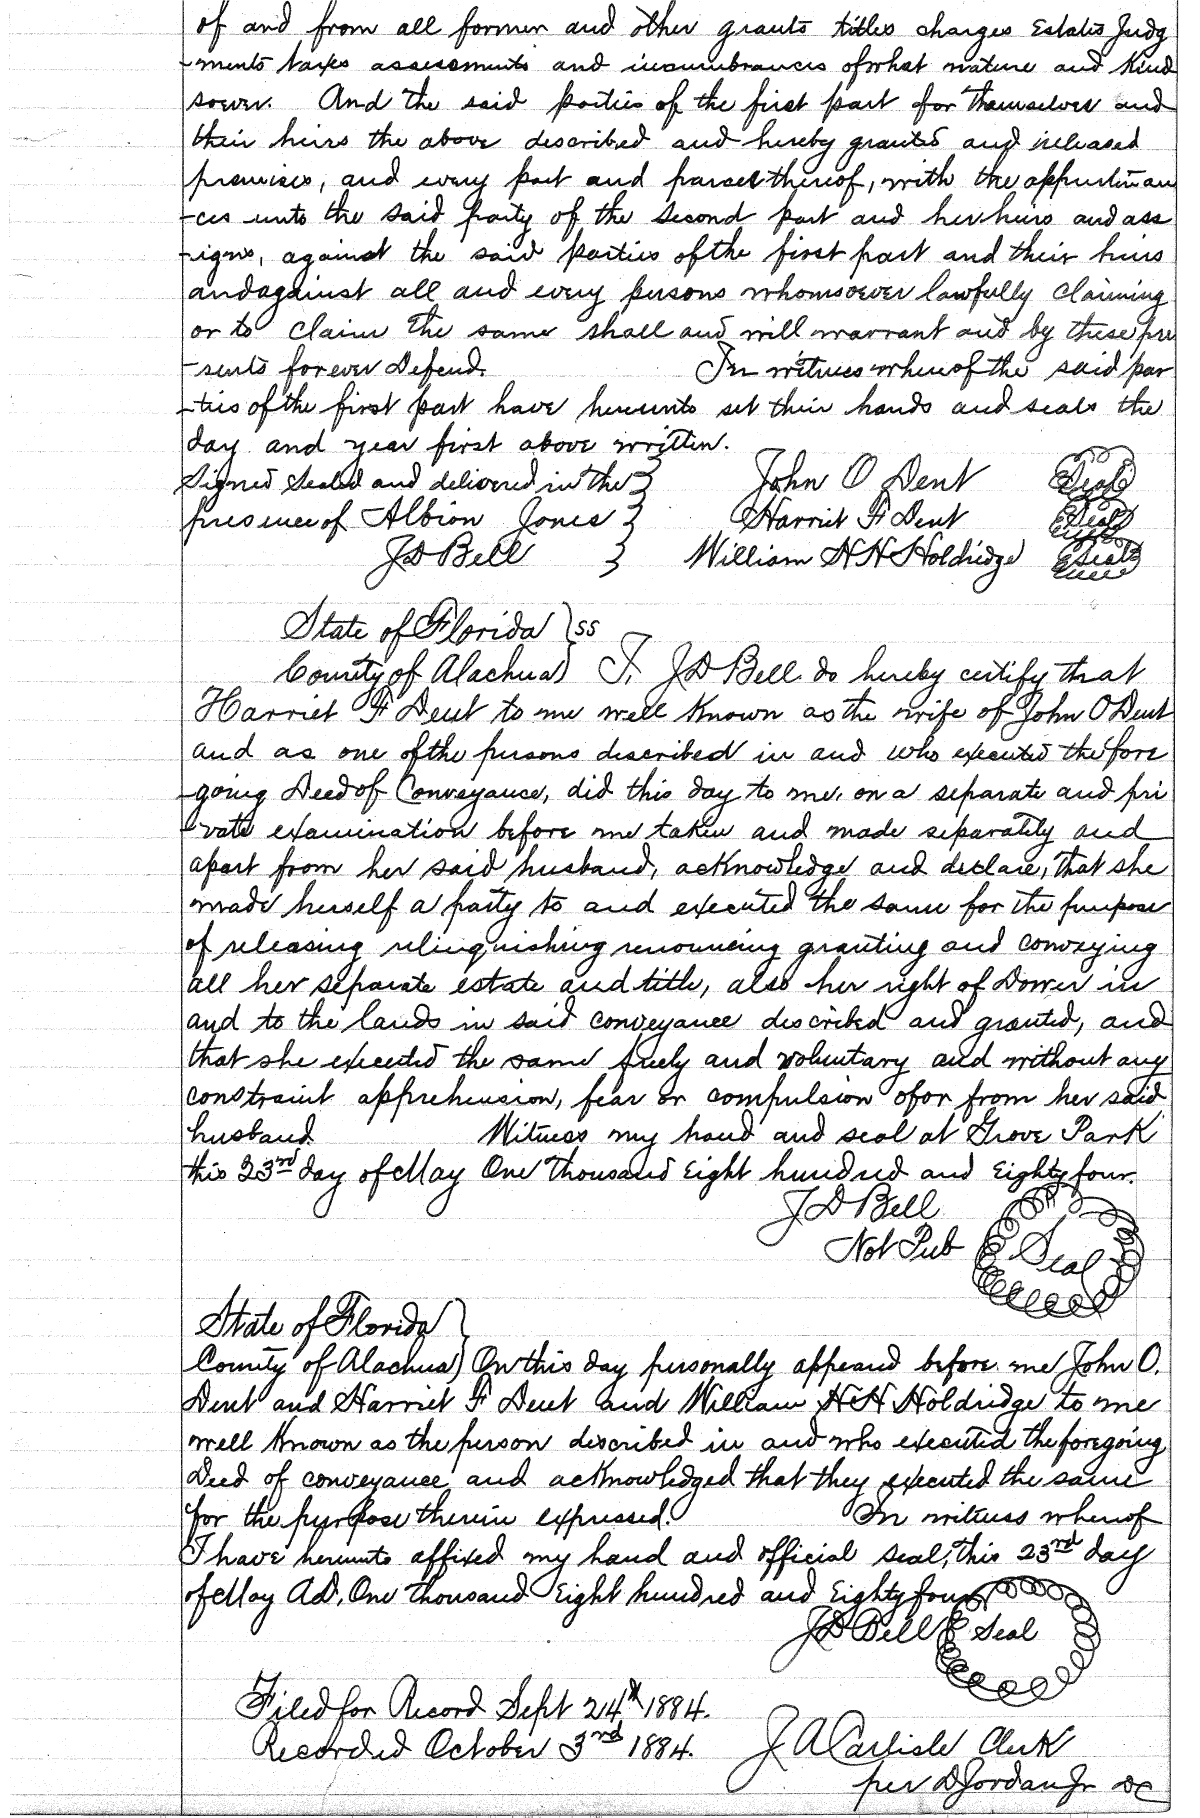 of and from all former and other grants titles charges Estates Judg
-ments taxes assessments and incumbrances of what nature and Kind
soever. And the said parties of the first part for themselves and
their heirs the above described and hereby granted and released
premises, and every part and parcel thereof, with the appurtenan
-ces unto the said party of the second part and her heirs and ass
-igns, against the said parties of the first part and their heirs
and against all and every persons whomsoever lawfully claiming
or to claim the same shall and will warrant and by these pre
-sents forever Defend. In witness whereof the said par
-ties of the first part have hereunto set their hands and seals the
day and year first above written.
Signed Sealed and delivered in the } John O Dent Seal
presence of Albion Jones } Harriet F Dent Seal
J D Bell } William H H Holdridge Seal
State of Florida } ss
County of Alachua } I, J D Bell do hereby certify that
Harriet F Dent to me well Known as the wife of John O Dent
and as one of the persons described in and who executed the fore
-going Deed of Conveyance, did this day to me, on a separate and pri
-vate examination before me taken and made separately and
apart from her said husband, acknowledge and declare, that she
made herself a party to and executed the same for the purpose
of releasing relinquishing renouncing granting and conveying
all her separate estate and title, also her right of Dower in
and to the lands in said conveyance described and granted, and
that she executed the same freely and voluntary and without any
constraint apprehension, fear or compulsion of or from her said
husband Witness my hand and seal at Grove Park
this 23rd day of May One Thousand Eight hundred and Eighty four.
J D Bell
Not Pub Seal
State of Florida }
County of Alachua } On this day personally appeared before me John O.
Dent and Harriet F Dent and William H H Holdridge to me
well Known as the person described in and who executed the foregoing
Deed of conveyance and acknowledged that they executed the same
for the purpose therein expressed. In witness whereof
I have hereunto affixed my hand and official seal, this 23rd day
of May AD, One thousand Eight hundred and Eighty four
J D Bell Seal
Filed for Record Sept 24th 1884.
Recorded October 3rd 1884. J A Carlisle Clerk
per D Jordan Jr DC